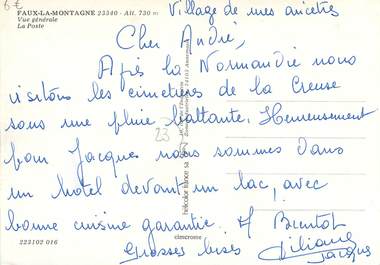 6€
FAUX-LA-MONTAGNE 23340 - Alt. 730 m
Vue générale
La Poste
Village de mes ancêtres
Cher André,
Après la Normandie nous
visitons les cimetières de la Creuse
sous une pluie battante. Heureusement
pour Jacques nous sommes dans
un hôtel devant un lac, avec
bonne cuisine garantie. A Bientôt
Grosses bises Liliane
Jacques
23
223102 016
cimcrome